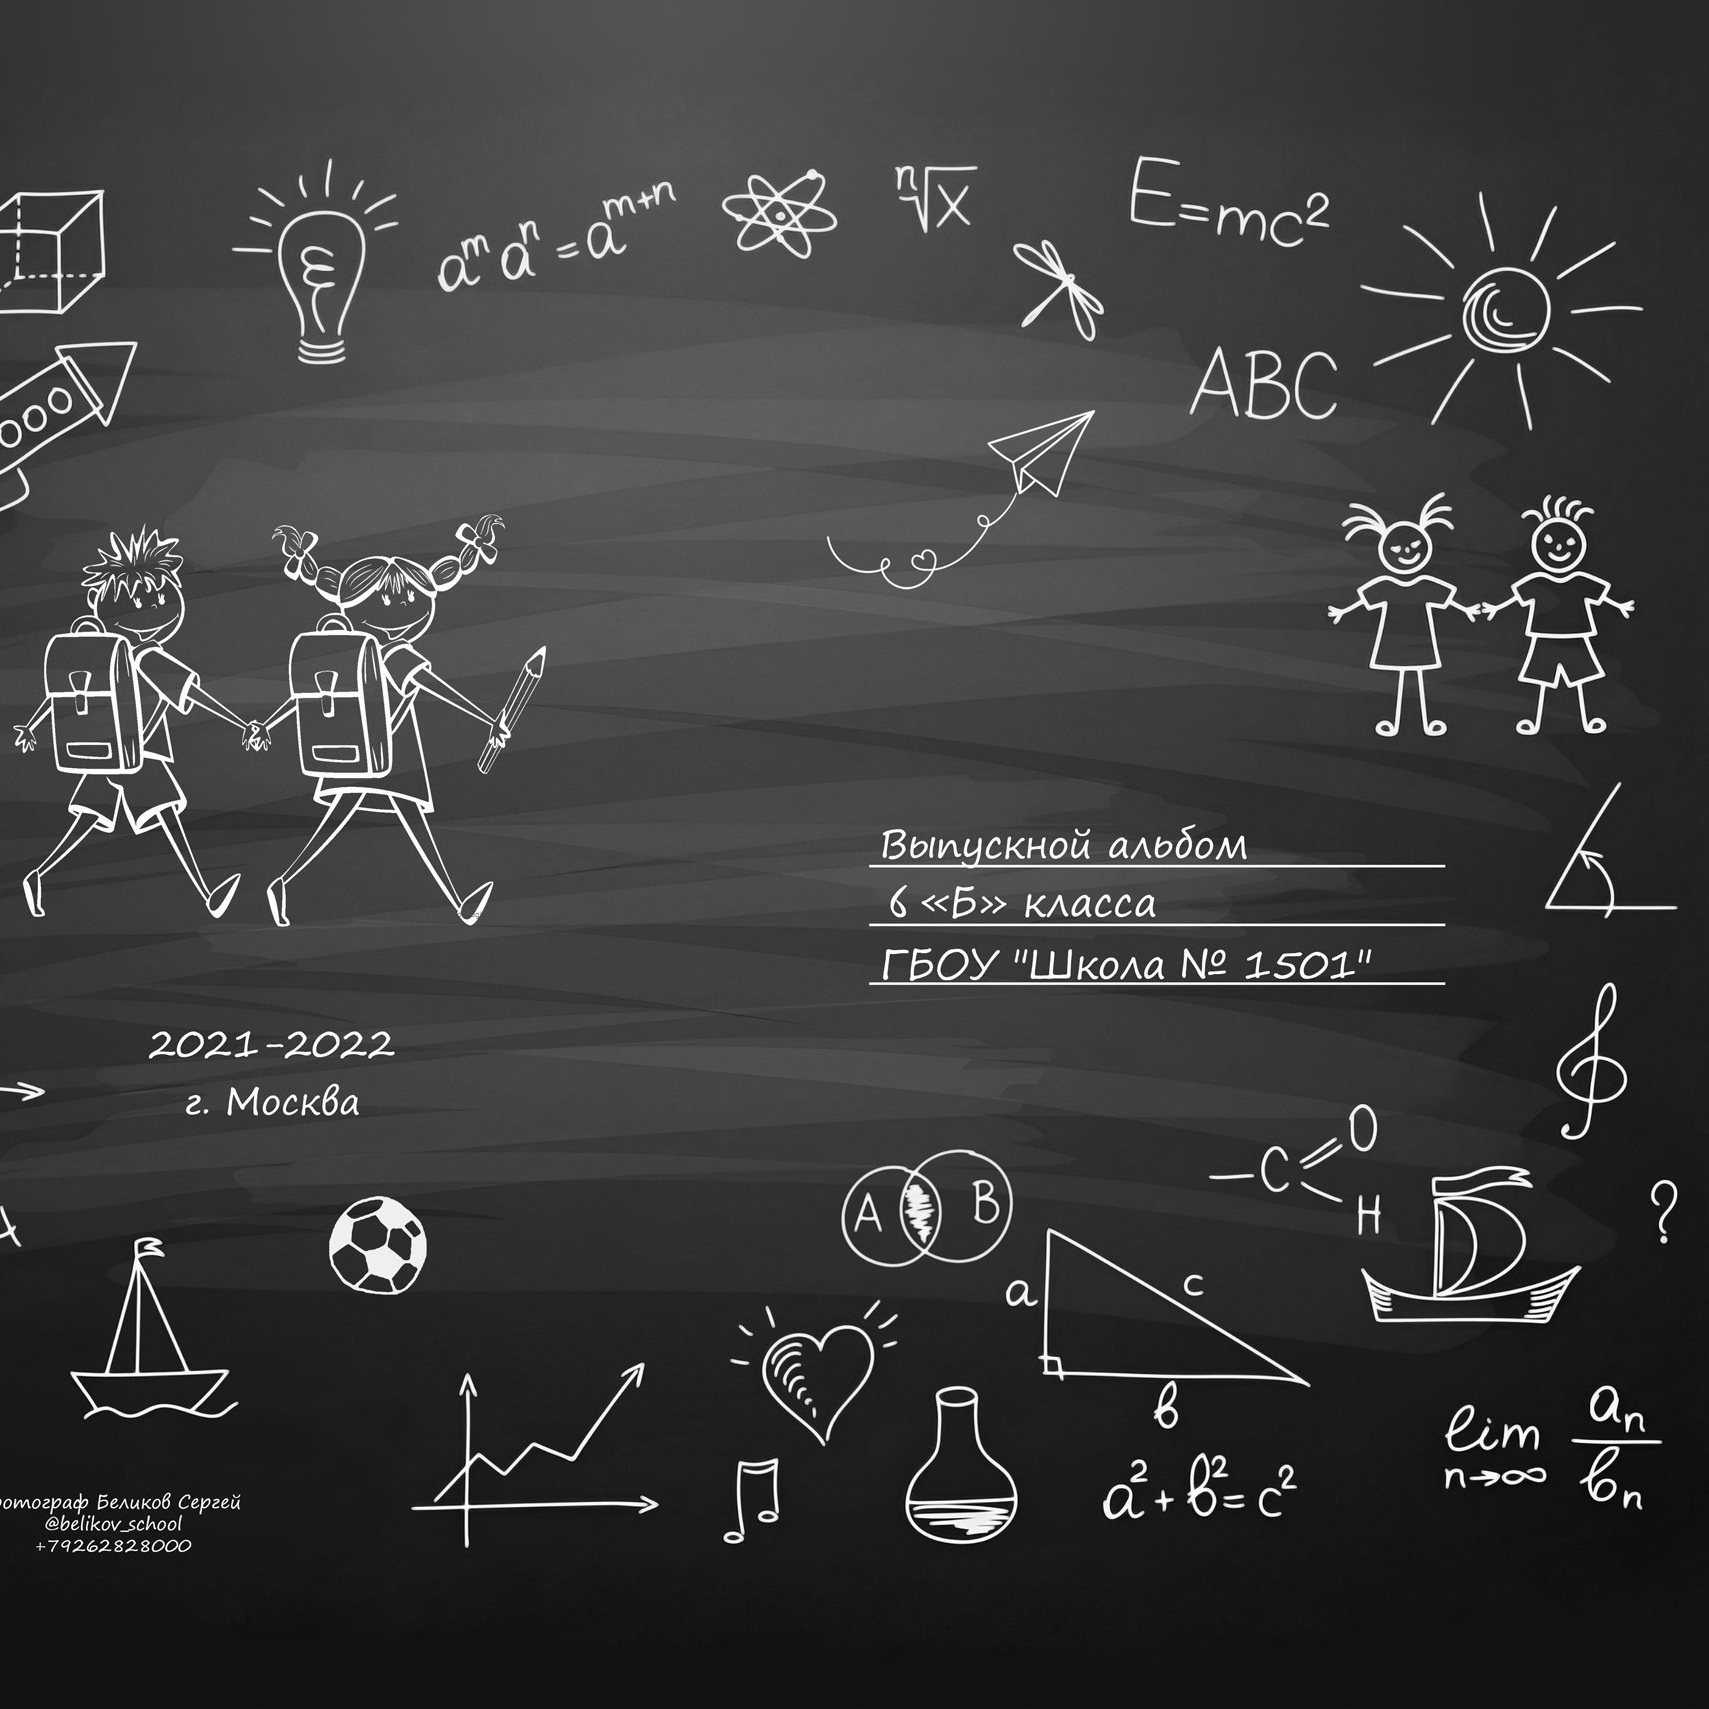 aᵐaⁿ=aᵐ⁺ⁿ
ⁿ√x
E=mc²
ABC
Выпускной альбом
6 «Б» класса
ГБОУ "Школа № 1501"
2021-2022
г. Москва
A B
–C
O
H
?
a
c
в
a²+в²=c²
lim
n→∞
aₙ
вₙ
Беликов Сергей
@belikov_school
+79262828000